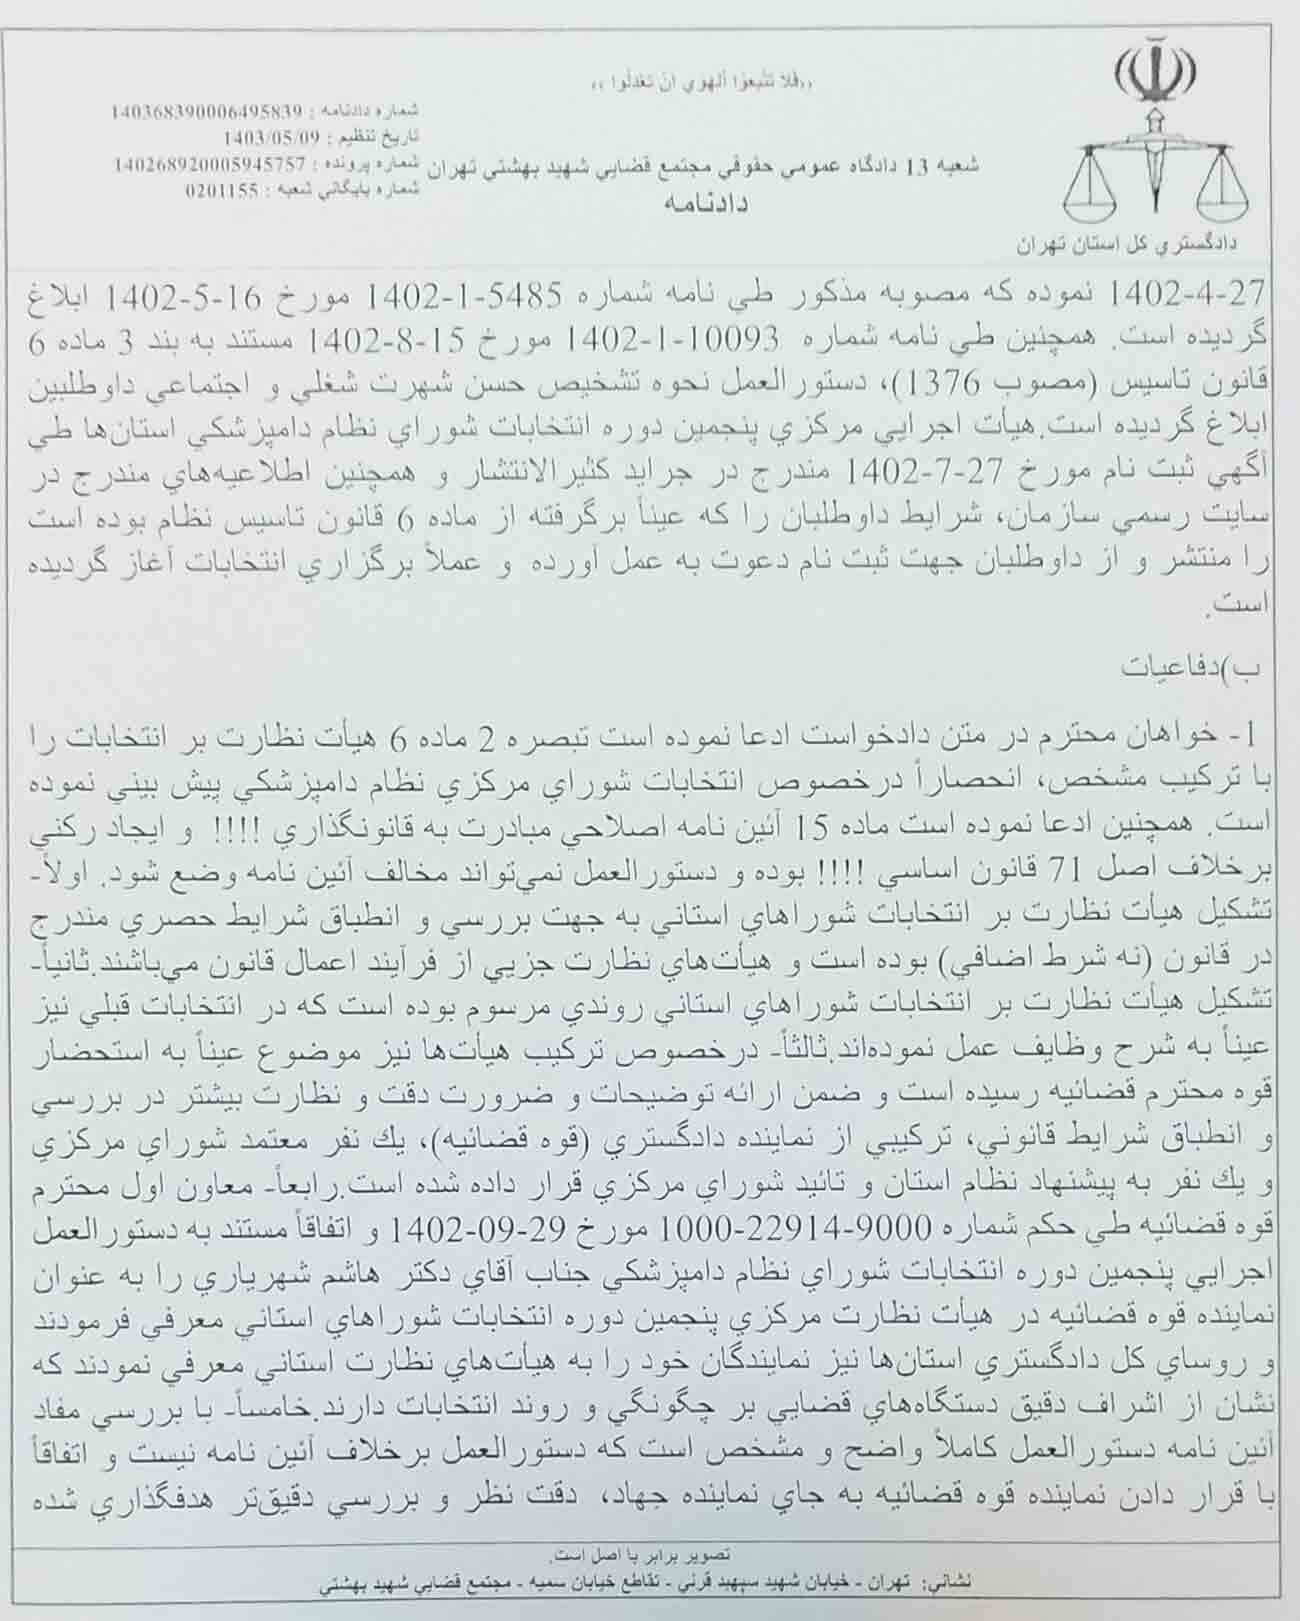 ،،فَلا تَتَّبِعوُا اَلهَوي اَنْ تَعْدِلُوا ،،
شماره دادنامه : 140368390006495839
تاريخ تنظيم : 1403/05/09
شماره پرونده : 140268920005945757
شماره بايگاني شعبه : 0201155
شعبه 13 دادگاه عمومي حقوقي مجتمع قضايي شهيد بهشتي تهران
دادنامه
دادگستري كل استان تهران
27-4-1402 نموده كه مصوبه مذكور طي نامه شماره 5485-1-1402 مورخ 16-5-1402 ابلاغ
گرديده است. همچنين طي نامه شماره 10093-1-1402 مورخ 15-8-1402 مستند به بند 3 ماده 6
قانون تاسيس (مصوب 1376)، دستورالعمل نحوه تشخيص حسن شهرت شغلي و اجتماعي داوطلبين
ابلاغ گرديده است.هيأت اجرايي مركزي پنجمين دوره انتخابات شوراي نظام دامپزشكي استان‌ها طي
آگهي ثبت نام مورخ 27-7-1402 مندرج در جرايد كثيرالانتشار و همچنين اطلاعيه‌هاي مندرج در
سايت رسمي سازمان، شرايط داوطلبان را كه عيناً برگرفته از ماده 6 قانون تاسيس نظام بوده است
را منتشر و از داوطلبان جهت ثبت نام دعوت به عمل آورده و عملاً برگزاري انتخابات آغاز گرديده
است.
ب)دفاعيات
1- خواهان محترم در متن دادخواست ادعا نموده است تبصره 2 ماده 6 هيأت نظارت بر انتخابات را
با تركيب مشخص، انحصاراً درخصوص انتخابات شوراي مركزي نظام دامپزشكي پيش بيني نموده
است. همچنين ادعا نموده است ماده 15 آئين نامه اصلاحي مبادرت به قانونگذاري !!!! و ايجاد ركني
برخلاف اصل 71 قانون اساسي !!!! بوده و دستورالعمل نمي‌تواند مخالف آئين نامه وضع شود. اولاً-
تشكيل هيأت نظارت بر انتخابات شوراهاي استاني به جهت بررسي و انطباق شرايط حصري مندرج
در قانون (نه شرط اضافي) بوده است و هيأت‌هاي نظارت جزيي از فرآيند اعمال قانون مي‌باشند.ثانياً-
تشكيل هيأت نظارت بر انتخابات شوراهاي استاني روندي مرسوم بوده است كه در انتخابات قبلي نيز
عيناً به شرح وظايف عمل نموده‌اند.ثالثاً- درخصوص تركيب هيأت‌ها نيز موضوع عيناً به استحضار
قوه محترم قضائيه رسيده است و ضمن ارائه توضيحات و ضرورت دقت و نظارت بيشتر در بررسي
و انطباق شرايط قانوني، تركيبي از نماينده دادگستري (قوه قضائيه)، يك نفر معتمد شوراي مركزي
و يك نفر به پيشنهاد نظام استان و تائيد شوراي مركزي قرار داده شده است.رابعاً- معاون اول محترم
قوه قضائيه طي حكم شماره 9000-22914-1000 مورخ 29-09-1402 و اتفاقاً مستند به دستورالعمل
اجرايي پنجمين دوره انتخابات شوراي نظام دامپزشكي جناب آقاي دكتر هاشم شهرياري را به عنوان
نماينده قوه قضائيه در هيأت نظارت مركزي پنجمين دوره انتخابات شوراهاي استاني معرفي فرمودند
و روساي كل دادگستري استان‌ها نيز نمايندگان خود را به هيأت‌هاي نظارت استاني معرفي نمودند كه
نشان از اشراف دقيق دستگاه‌هاي قضايي بر چگونگي و روند انتخابات دارند.خامساً- با بررسي مفاد
آئين نامه دستورالعمل كاملاً واضح و مشخص است كه دستورالعمل برخلاف آئين نامه نيست و اتفاقاً
با قرار دادن نماينده قوه قضائيه به جاي نماينده جهاد، دقت نظر و بررسي دقيق‌تر هدفگذاري شده
تصوير برابر با اصل است.
نشاني: تهران - خيابان شهيد سپهبد قرني - تقاطع خيابان سميه - مجتمع قضايي شهيد بهشتي